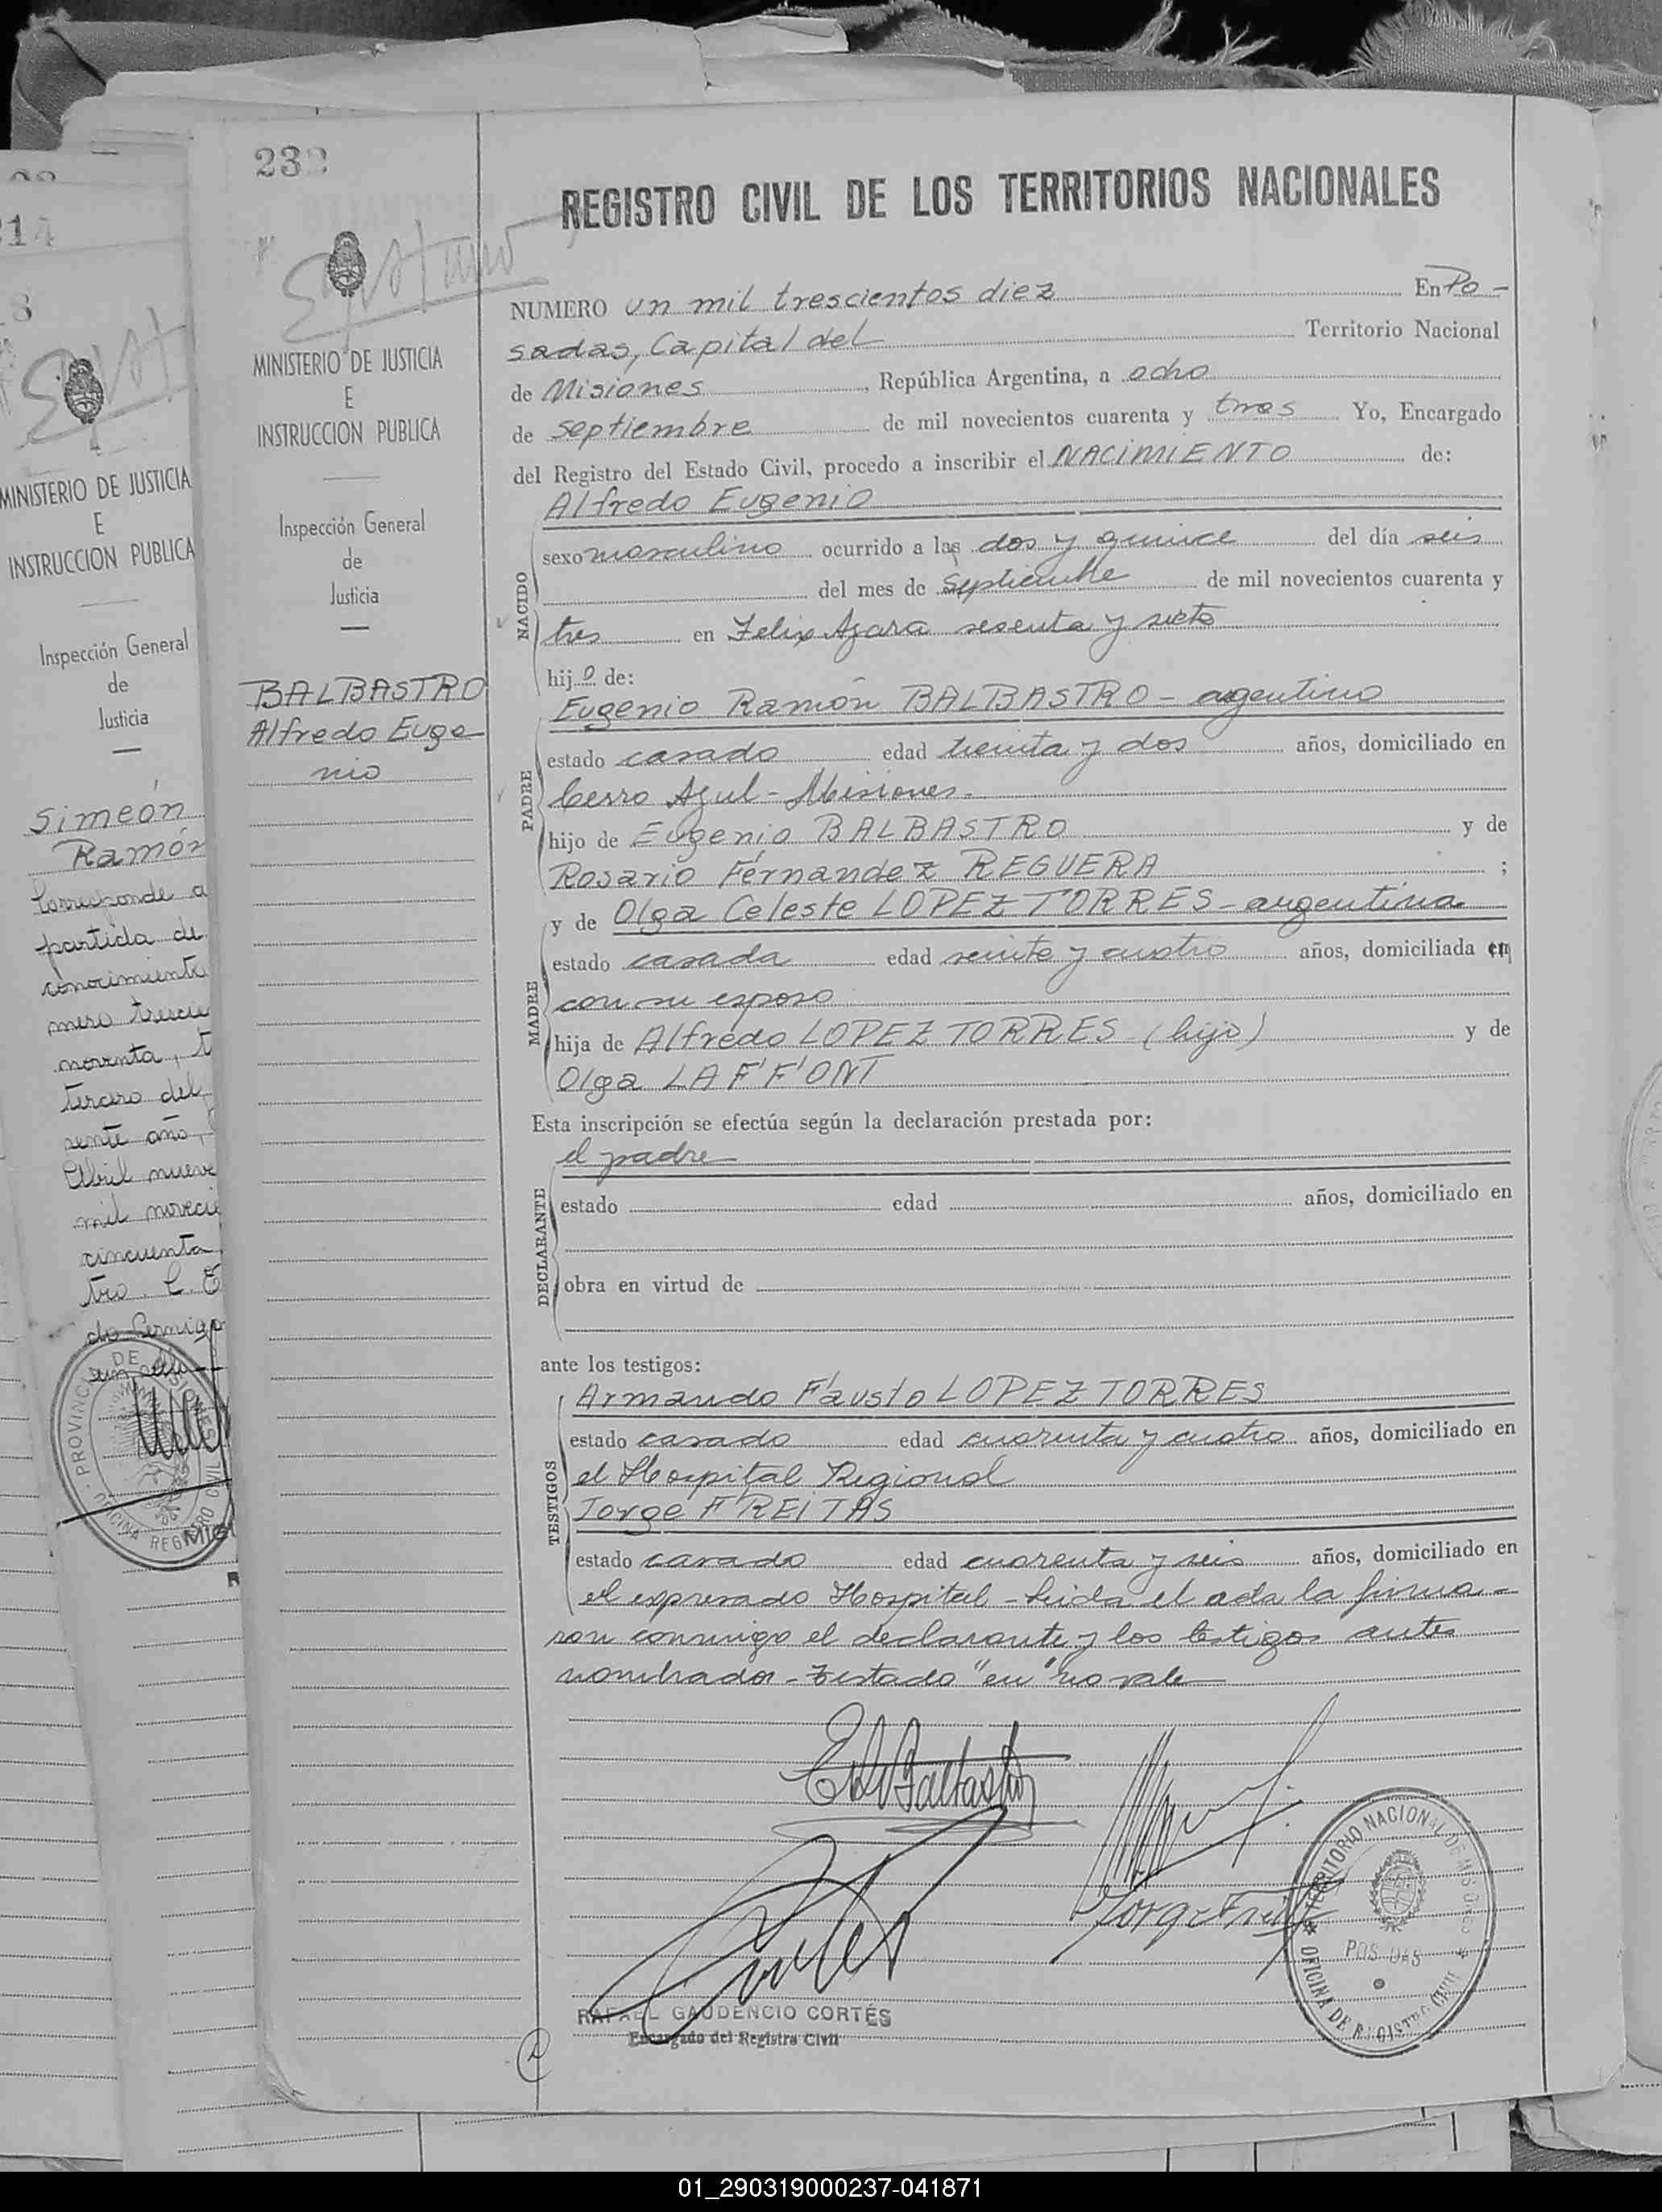 232
REGISTRO CIVIL DE LOS TERRITORIOS NACIONALES
MINISTERIO DE JUSTICIA
E
INSTRUCCION PUBLICA
Inspección General
de
Justicia
BALBASTRO
Alfredo Euge
nio
NUMERO un mil trescientos diez En Po-
sadas, Capital del Territorio Nacional
de Misiones, República Argentina, a ocho
de septiembre de mil novecientos cuarenta y tres Yo, Encargado
del Registro del Estado Civil, procedo a inscribir el NACIMIENTO de:
Alfredo Eugenio
NACIDO
sexo masculino ocurrido a las dos y quince del día seis
del mes de septiembre de mil novecientos cuarenta y
tres en Felix Azara sesenta y siete
hijo de:
Eugenio Ramón BALBASTRO - argentino
PADRE
estado casado edad treinta y dos años, domiciliado en
Cerro Azul - Misiones.
hijo de Eugenio BALBASTRO y de
Rosario Férnandez REGUERA ;
y de Olga Celeste LOPEZ TORRES - argentina
MADRE
estado casada edad veinte y cuatro años, domiciliada en
con su esposo
hija de Alfredo LOPEZ TORRES (hijo) y de
Olga LAFFONT
Esta inscripción se efectúa según la declaración prestada por:
el padre
DECLARANTE
estado edad años, domiciliado en
obra en virtud de
ante los testigos:
Armando Fausto LOPEZ TORRES
TESTIGOS
estado casado edad cuarenta y cuatro años, domiciliado en
el Hospital Regional
Jorge FREITAS
estado casado edad cuarenta y seis años, domiciliado en
el expresado Hospital - Leida el acta la firma-
ron conmigo el declarante y los testigos antes
nombrados - Testado "en" no vale
E R Balbastro
Jorge Freitas
RAFAEL GAUDENCIO CORTÉS
Encargado del Registro Civil
TERRITORIO NACIONAL DE MISIONES
POSADAS
OFICINA DE REGISTRO CIVIL
314
MINISTERIO DE JUSTICIA
E
INSTRUCCION PUBLICA
Inspección General
de
Justicia
Simeón
Ramón
Corresponde a
partida de
conocimiento
mero trescie
noventa, t
tercero del
sente año,
Abril nueve
mil novecie
cincuenta
tro. C. E
PROVINCIA DE MISIONES
OFICINA REGISTRO CIVIL
01_290319000237-041871